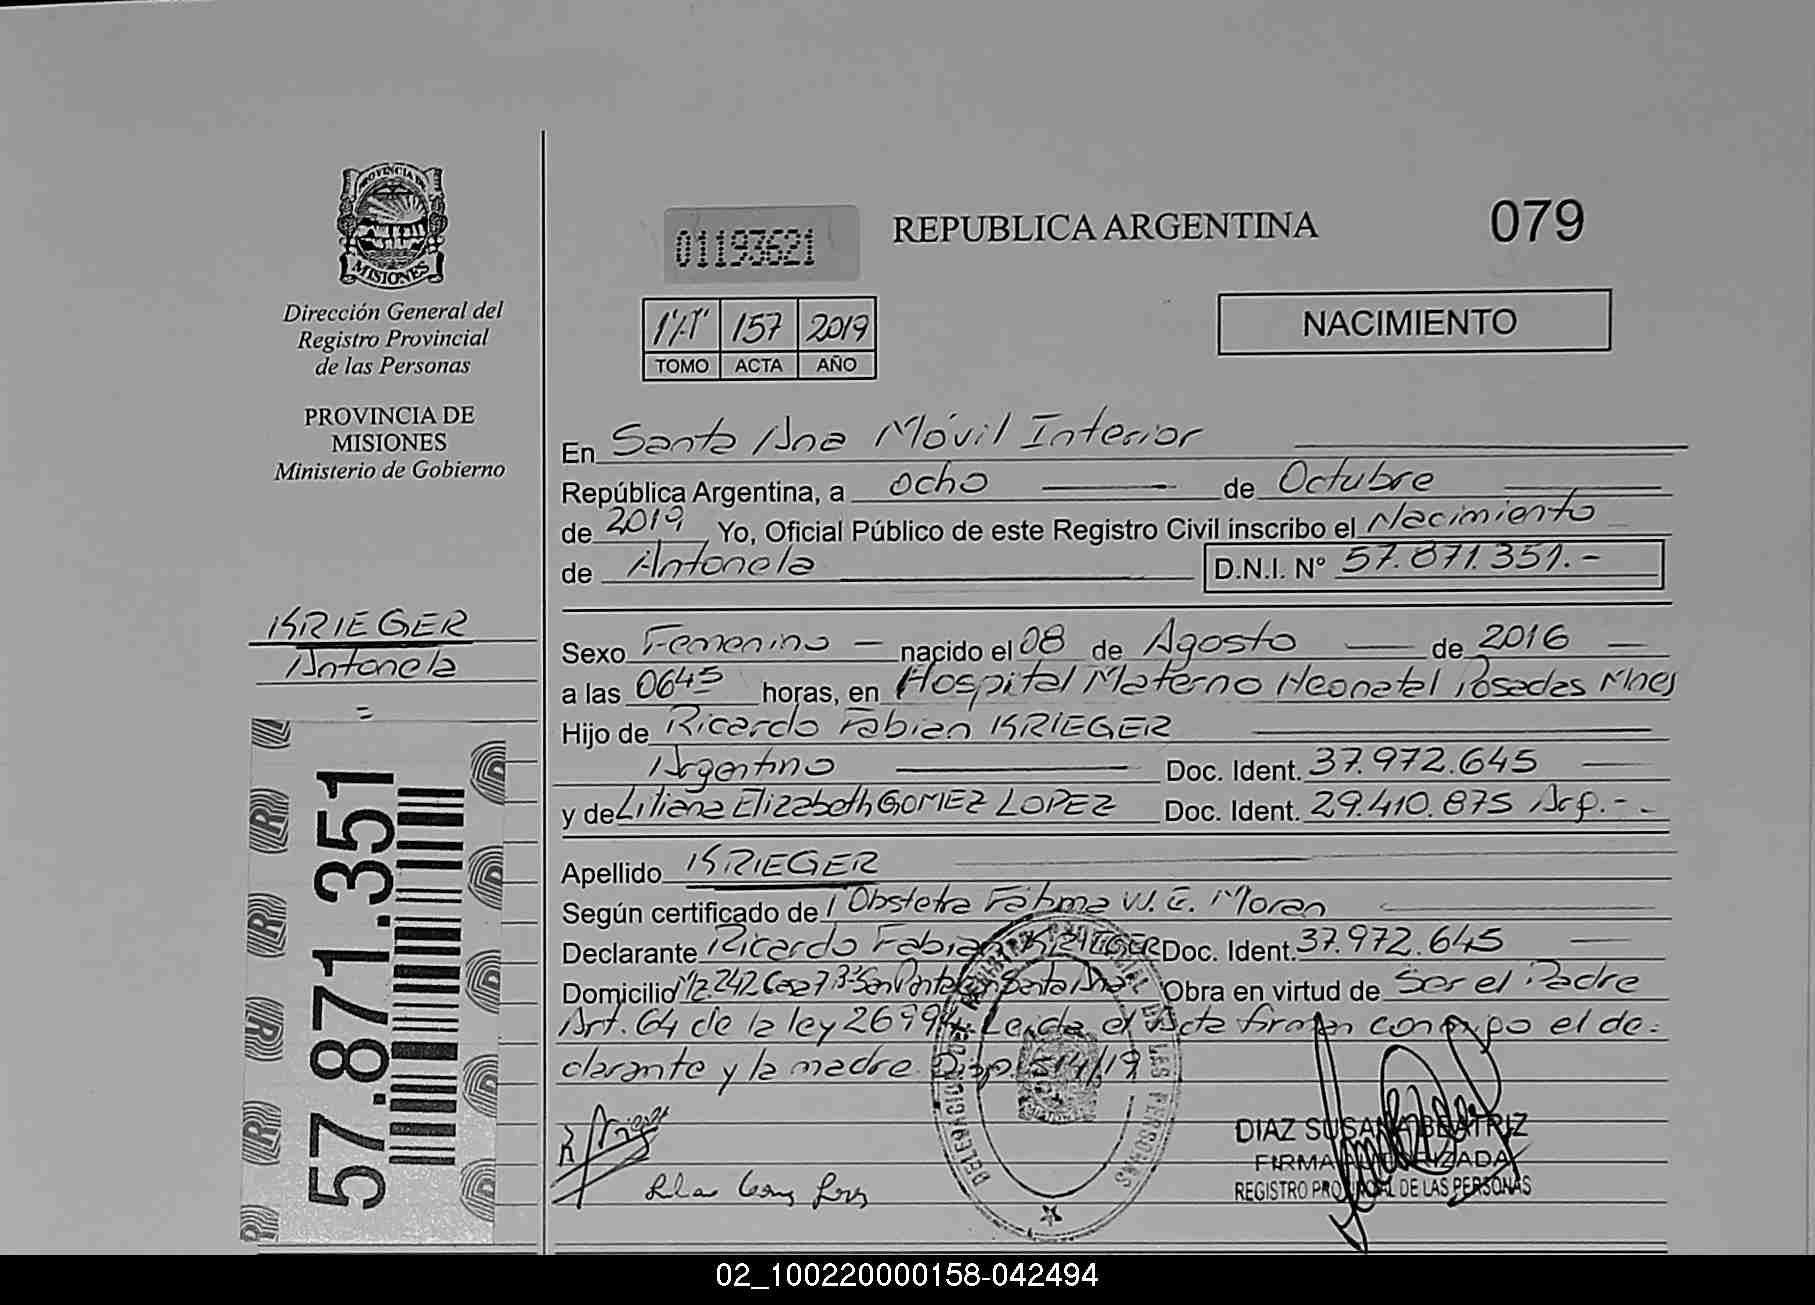 PROVINCIA DE
MISIONES
Dirección General del
Registro Provincial
de las Personas
PROVINCIA DE
MISIONES
Ministerio de Gobierno
KRIEGER
Antonela
57.871.351
01193621
REPUBLICA ARGENTINA
079
157 2019
TOMO ACTA AÑO
NACIMIENTO
En Santa Ana Móvil Interior
República Argentina, a ocho de Octubre
de 2019 Yo, Oficial Público de este Registro Civil inscribo el Nacimiento
de Antonela D.N.I. N° 57.871.351.-
Sexo Femenino - nacido el 08 de Agosto de 2016
a las 0645 horas, en Hospital Materno Neonatal Posadas Mnes
Hijo de Ricardo Fabian KRIEGER
Argentino Doc. Ident. 37.972.645
y de Liliana Elizabeth GOMEZ LOPEZ Doc. Ident. 29.410.875 Arg.-
Apellido KRIEGER
Según certificado de Obstetra Fatima W. E. Moran
Declarante Ricardo Fabian KRIEGER Doc. Ident. 37.972.645
Domicilio Mz. 242 Casa 7 Santa Ana Obra en virtud de Ser el Padre
Art. 64 de la ley 26994. Leida el Acta firman conmigo el de-
clarante y la madre. Disp. 514/19
DELEGACION REGISTRO PROVINCIAL DE LAS PERSONAS
DIAZ SUSANA BEATRIZ
FIRMA AUTORIZADA
REGISTRO PROVINCIAL DE LAS PERSONAS
02_100220000158-042494